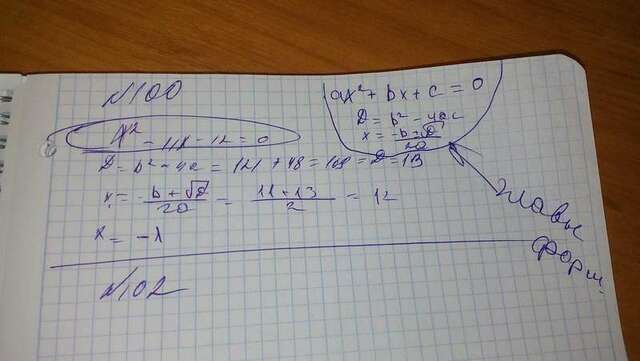 №100
x² - 11x - 12 = 0
D = b² - 4ac = 121 + 48 = 169 = D = 13
x₁ = -b + √D / 2a = 11 + 13 / 2 = 12
x = -1
№102
ax² + bx + c = 0
D = b² - 4ac
x = -b ± √D / 2a
главы
форм.